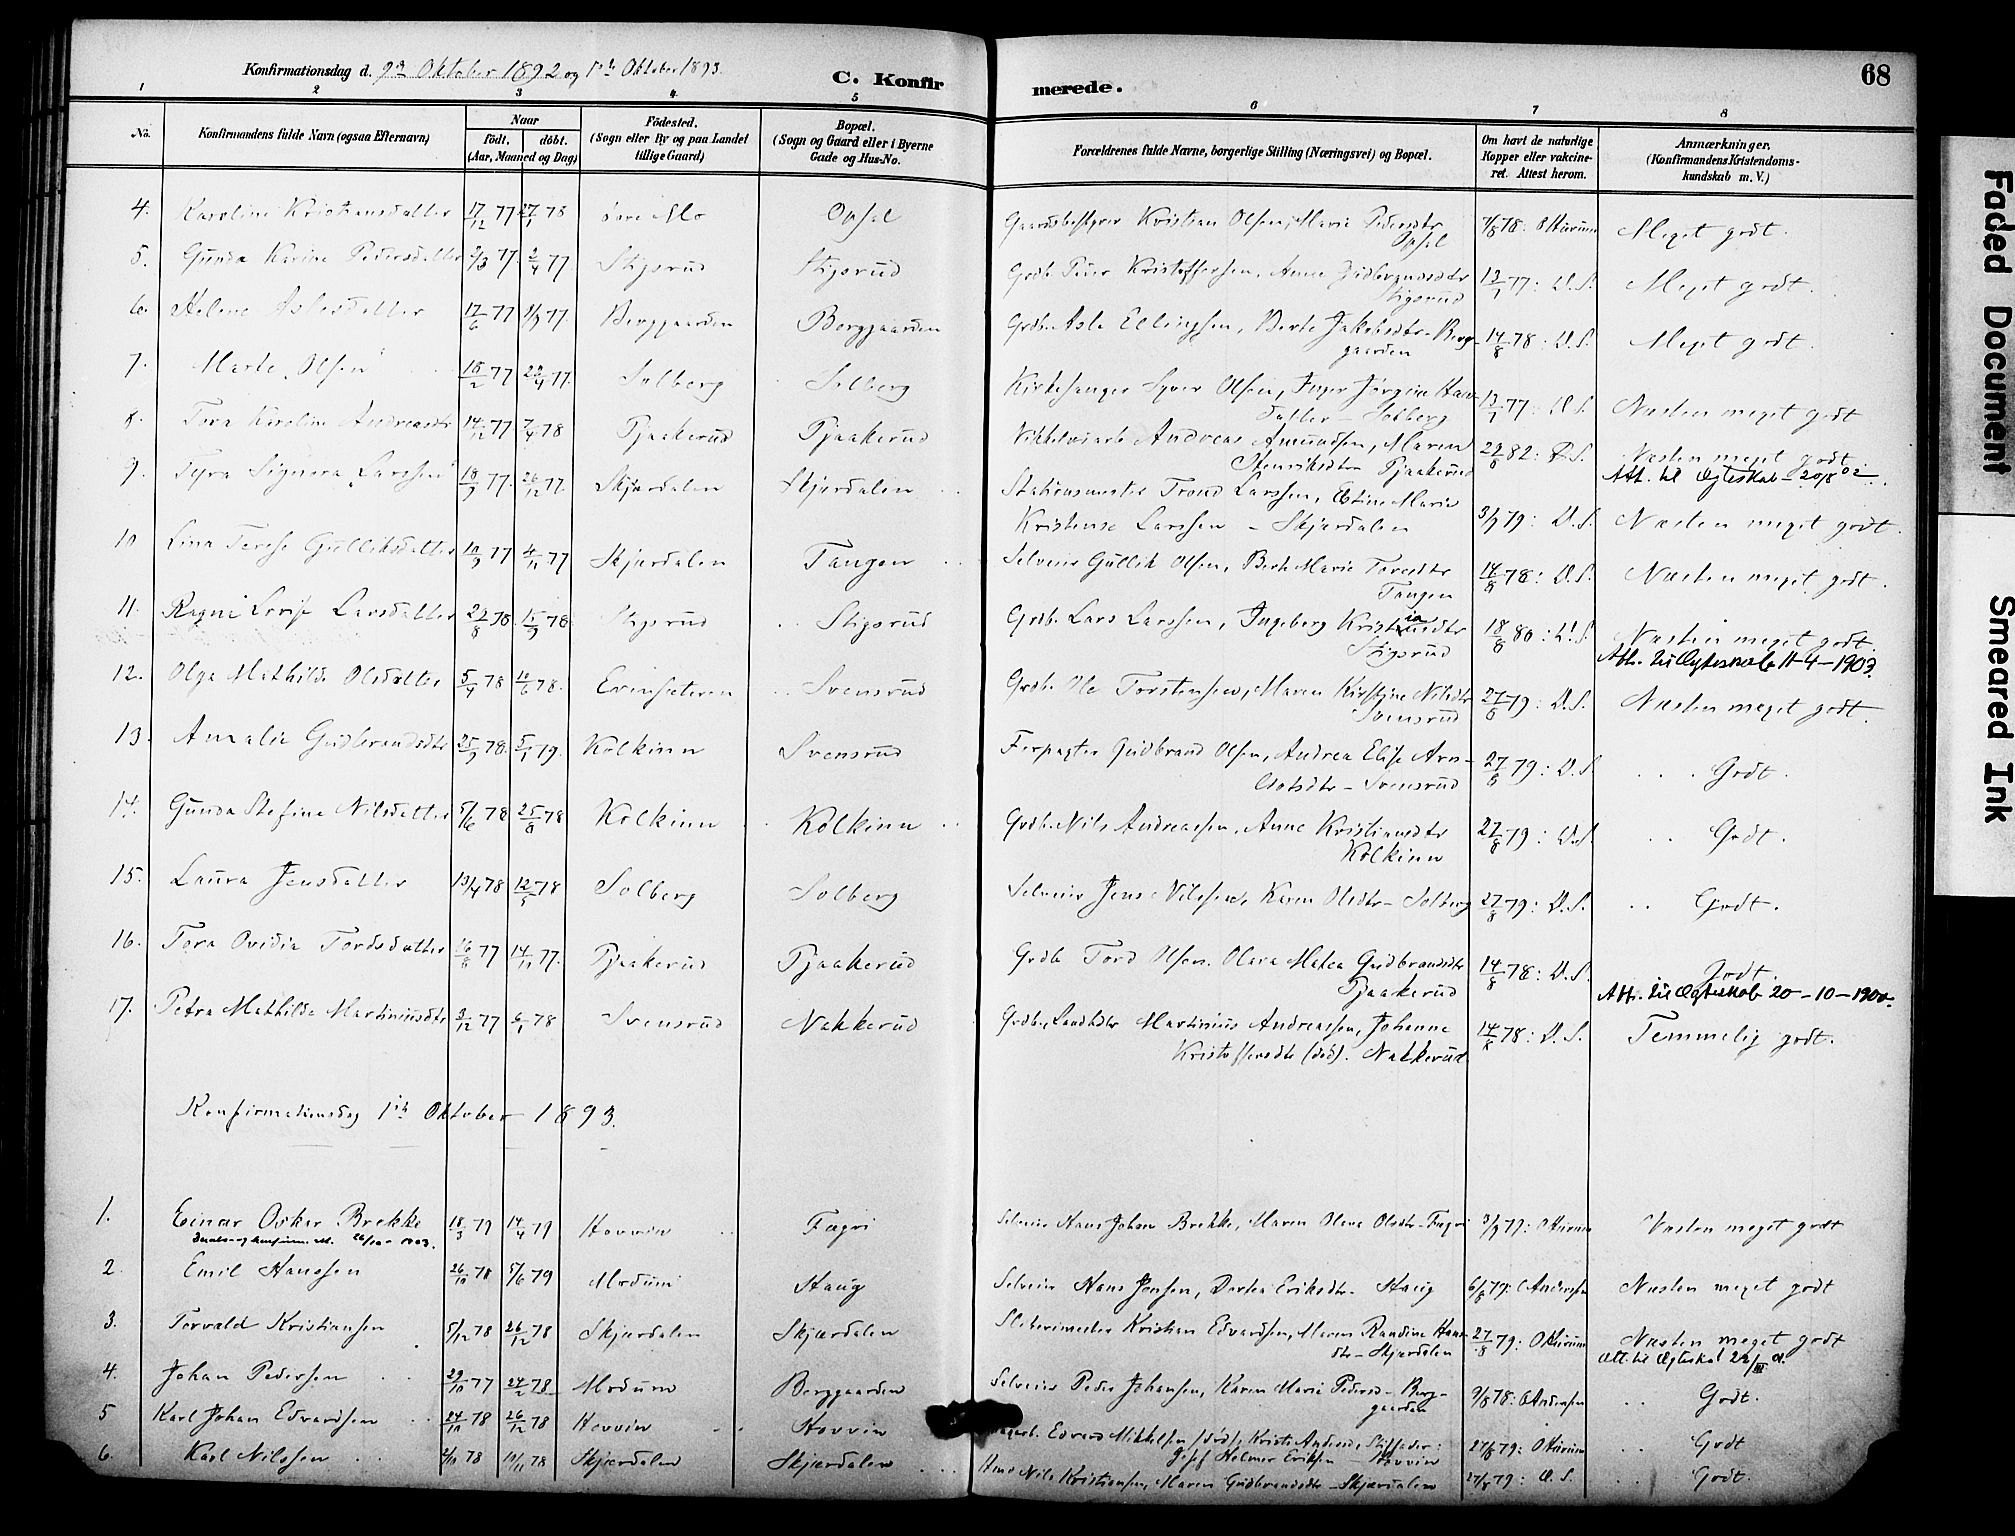 Konfirmationsdag d. 9de Oktober 1892 og 1ste Oktober 1893.
C. Konfirmerede.
68
1 2 3 4 5 6 7 8
No. Konfirmandens fulde Navn (ogsaa Efternavn) Naar født. døbt. (Aar, Maaned og Dag) Fødested. (Sogn eller By og paa Landet tillige Gaard) Bopæl. (Sogn og Gaard eller i Byerne Gade og Hus-No. Forældrenes fulde Navne, borgerlige Stilling (Næringsvei) og Bopæl. Om havt de naturlige Kopper eller vakcineret. Attest herom. Anmærkninger. (Konfirmandens Kristendomskundskab m. V.)
4. Karoline Kristiansdatter 17/12 77 27/1 78 øvre Mo Opsal Gaardsbestyrer Kristian Olsen, Marie Pedersdtr Opsal 7/8 78: OHurum Meget godt.
5. Gunda Karine Pedersdatter 2/3 77 2/4 77 Stigsrud Stigsrud Grdb. Peder Kristoffersen, Anne Gudbrandsdtr Stigsrud 13/7 77: D.S. Meget godt.
6. Helene Aslesdatter 17/6 77 Berggaarden Berggaarden Grdb. Asle Ellingsen, Berte Jakobsdtr Berggaarden 14/8 78: D.S. Meget godt.
7. Marte Olsen 18/2 77 22/4 77. Solberg Solberg Kirkesanger Syver Olsen, Inger Jørgine Hansdatter – Solberg 13/7 77: D.S. Næsten meget godt
8. Tora Karoline Andreasdtr 14/12 77 7/4 78 Pjaakerud Pjaakerud Andreas Amundsen, Maren Henriksdtr Pjaakerud 29/8 82: D.S. Næsten meget godt. Att. til Ægteskab 20/8 02
9. Tyra Signora Larssen 18/9 77. 26/12 77. Skjærdalen Skjærdalen Stationsmester Trond Larssen, Marie Kristense Larssen – Skjærdalen 3/9 79: D.S. Næsten meget godt.
10 Lina Terese Gulliksdatter 10/9 77 4/11 77 Skjærdalen Tangen Selveier Gullik Olsen, Berte Marie Toresdtr Tangen 14/8 78: D.S. Næsten meget godt.
11. Ragna Lovise Larsdatter 29/8 78 15/9 78 Stigsrud Stigsrud Grdb. Lars Larssen, Ingeborg Stigsrud 18/8 80: D.S. Næsten meget godt. Att. til Ægteskab 11-4-1903.
12. Olga Mathilde Olsdatter 5/4 78 10/6 78. Evensæteren Svensrud Grdb. Ole Torstensen, Maren Kirstine Nilsdtr Svensrud 27/8 79: D.S. Næsten meget godt.
13. Amalie Gudbrandsdtr 25/9 78. 5/1 79. Kolkinn Svensrud Forpagter Gudbrand Olsen, Andrea Elise Svensrud 27/8 79: D.S. Godt.
14. Gunda Stefine Nilsdatter 5/6 78 25/8 78 Kolkinn Kolkinn Grdb. Nils Andreassen, Anne Kristiansdtr Kolkinn 27/8 79: D.S. Godt.
15. Laura Jensdatter 13/4 78 12/5 78 Solberg Solberg Selveier Jens Nilssen, Karen Olsdtr – Solberg 27/8 79: D.S. Godt.
16. Tora Ovidia Tordsdatter 26/8 77 14/11 77. Pjaakerud Pjaakerud Grdb. Tord Olsen. Olava Matea Gudbrandsdtr Pjaakerud 14/8 78: D.S. Godt. Att. til Ægteskab 20-10-1900.
17. Petra Mathilde Martiniusdtr 3/12 77 6/1 78 Svensrud Nakkerud Martinius Andreassen, Johanne Kristoffersdtr (død). Nakkerud. 14/8 78: D.S. Temmelig godt.
Konfirmationsdag 1ste Oktober 1893.
1. Einar Oskar Brekke 18/3 79 14/4 79 Hovvin Fagri Selveier Hans Johan Brekke, Maren Olava Olsdtr – Fagri 3/9 79: OHurum Næsten meget godt
2. Emil Hanssen 26/10 78 5/6 79 Modum Haug Selveier Hans Jensen, Dortea Eriksdtr – Haug 6/8 79: Andersen Næsten meget godt
3. Torvald Kristiansen 5/12 78 26/12 78 Skjærdalen Skjærdalen Sliberimester Kristian Edvardsen, Maren Randine Hansdtr – Skjærdalen 27/8 79: OHurum Næsten meget godt Att. til Ægteskab
4. Johan Pedersen 29/10 77 24/2 78 Modum Berggaarden Selveier Peder Johansen, Karen Marie Pedersd – Berggaarden 9/8 78: Andersen Godt.
5 Karl Johan Edvardsen 24/10 78 26/12 78 Hovvin Hovvin Edvard Mikkelsen (død), Kristi Andersd, Stiffader: Josef Helmer Eriksen – Hovvin 27/8 79: OHurum Godt
6. Karl Nilssen 4/10 78 10/11 78 Skjærdalen Skjærdalen Nils Kristiansen, Maren Gudbrandsdtr – Skjærdalen 27/8 79: D.S. Godt.
Faded Document
Smeared Ink